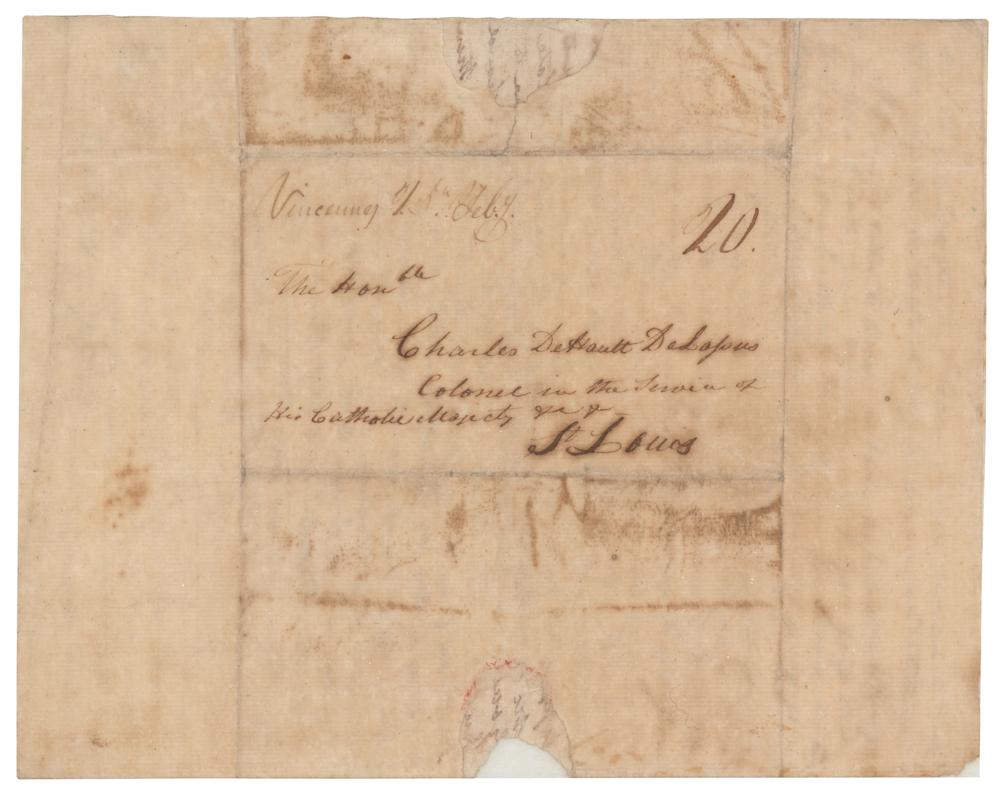 Vincennes Feby.
20.
The Honble
Charles DeHault DeLassus
Colonel in the Service of
His Catholic Majesty &c &
St Louis